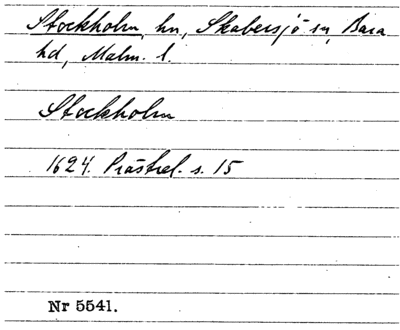 Stockholm, hn, Skabersjö sn, Bara
hd, Malm. l.
Stockholm
1624. Prästrel. s. 15
Nr 5541.